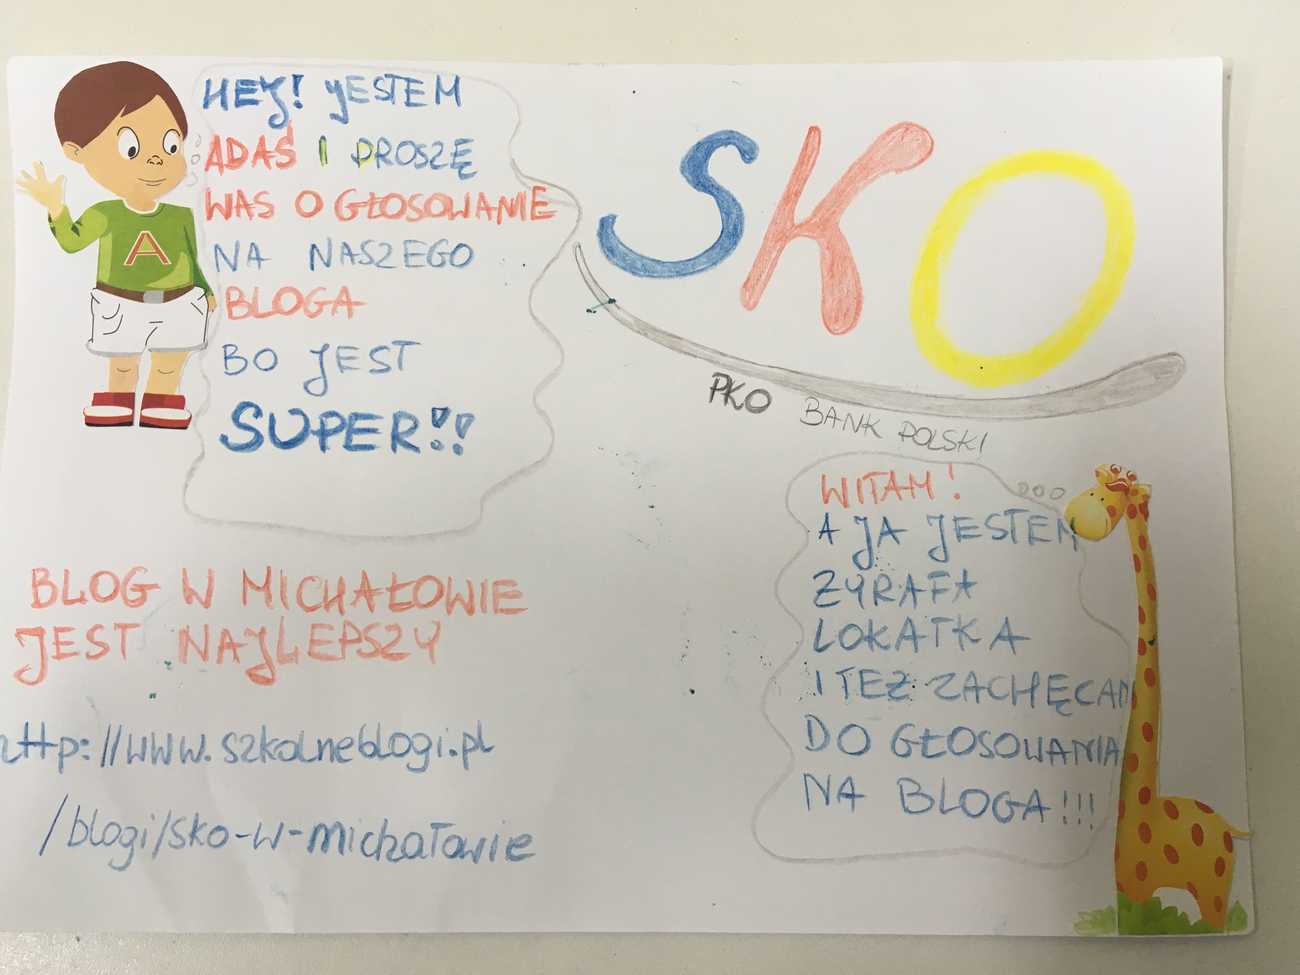 HEJ! JESTEM
ADAŚ I PROSZĘ
WAS O GŁOSOWANIE
NA NASZEGO
BLOGA
BO JEST
SUPER!!
A
SKO
PKO BANK POLSKI
WITAM!
A JA JESTEM
ŻYRAFA
LOKATKA
I TEŻ ZACHĘCAM
DO GŁOSOWANIA
NA BLOGA!!!
BLOG W MICHAŁOWIE
JEST NAJLEPSZY
http://www.szkolneblogi.pl
/blogi/sko-w-michałowie